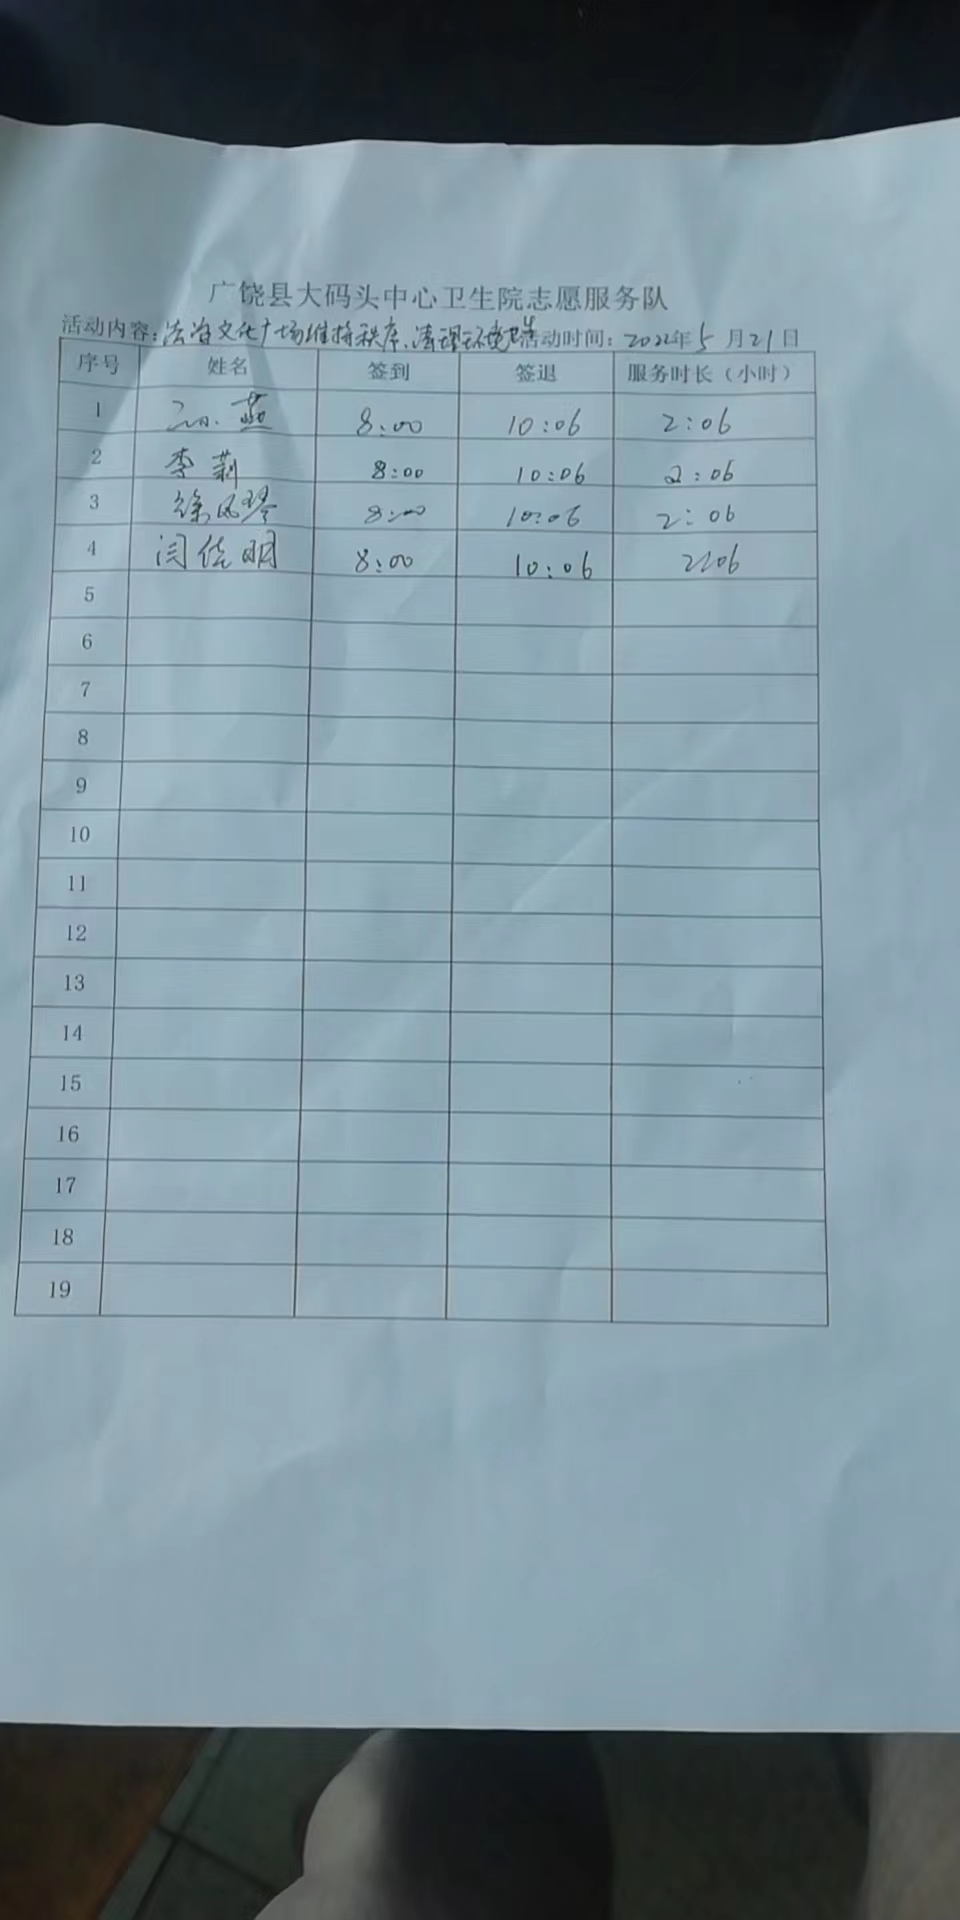 广饶县大码头中心卫生院志愿服务队
活动内容:法治文化广场维持秩序、清理环境卫生活动时间:2022年5月21日
序号 姓名 签到 签退 服务时长(小时)
1 孙燕 8:00 10:06 2:06
2 李莉 8:00 10:06 2:06
3 徐风琴 8:00 10:06 2:06
4 闫佳明 8:00 10:06 2:06
5
6
7
8
9
10
11
12
13
14
15
16
17
18
19